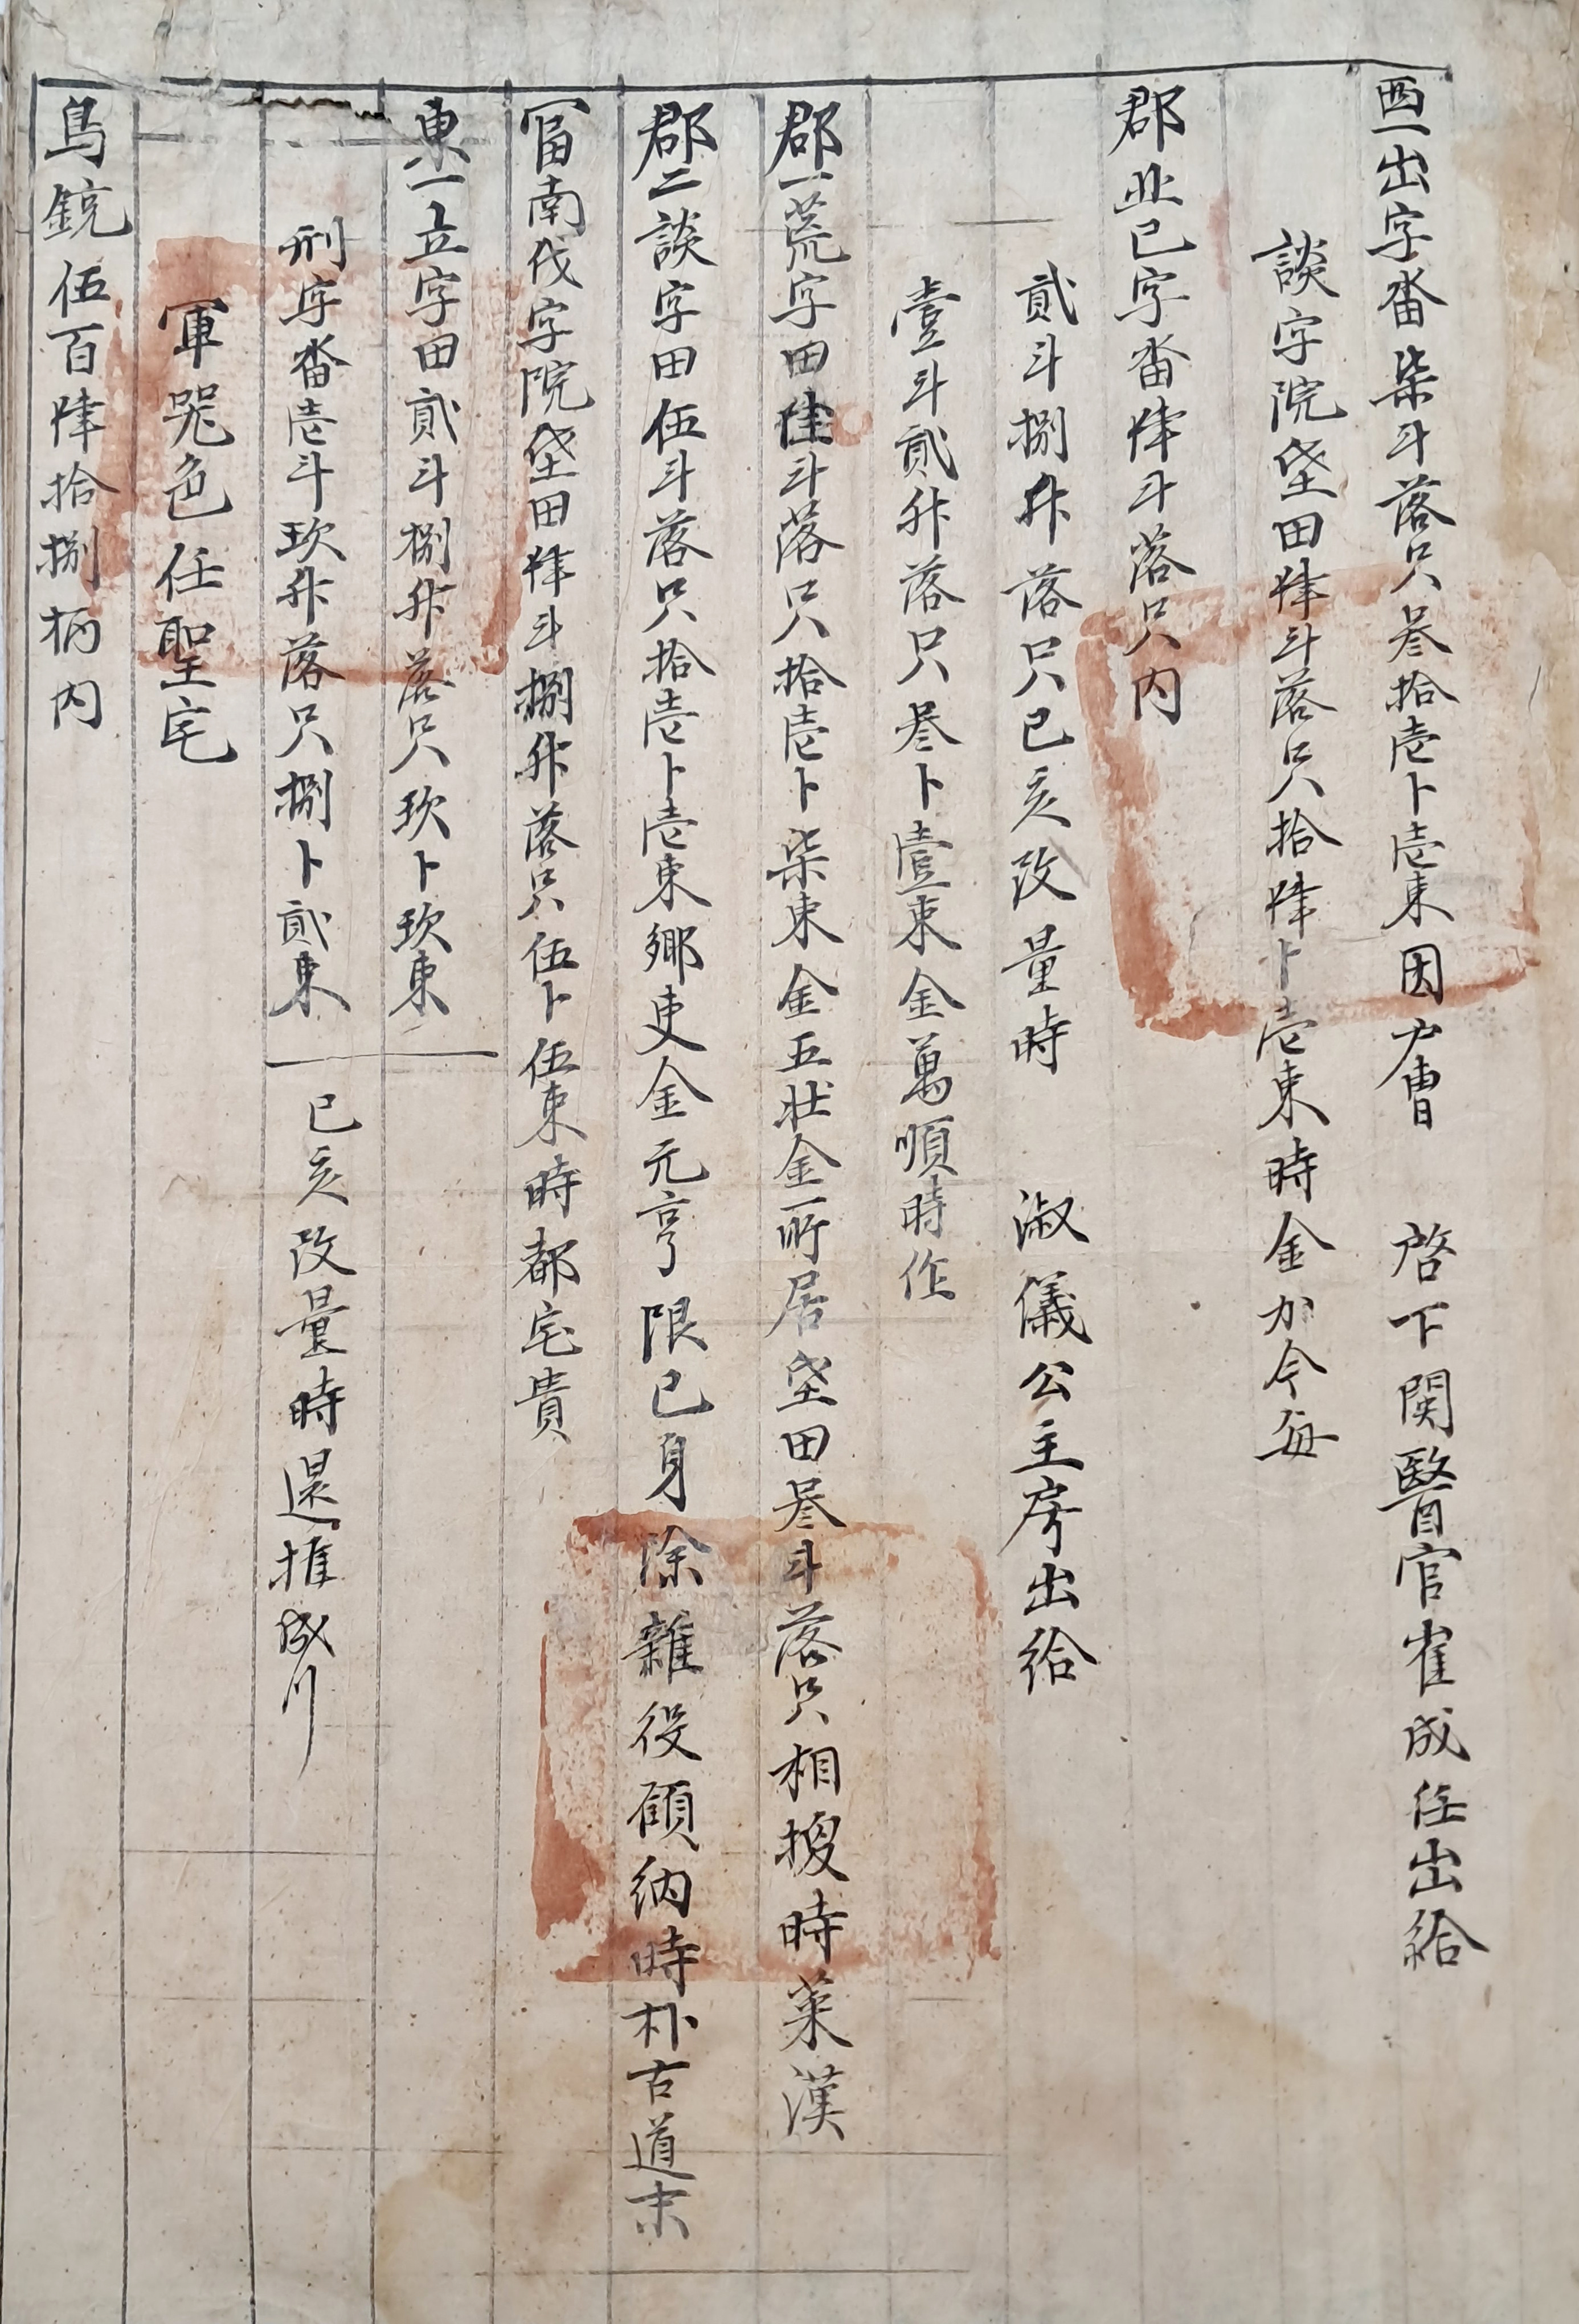 西一出字畓柒斗落只叄拾壱卜壱束因户曹 啓下関醫官崔成任出給
談字院垈田陸斗落只拾陸卜壱束時金加今每
郡北已字畓陸斗落只内
貳斗捌升落只已亥改量時 淑儀公主房出給
壹斗貳升落只叄卜壹束金萬順時作
郡一荒字田陸斗落只拾壱卜柒束金五壯金一所居垈田叄斗落只相換時萊漢
郡二談字田伍斗落只拾壱卜壱束鄉吏金元亨限已身除雜役願納時朴古道末
冨南伐字院垈田陸斗捌升落只伍卜伍束時都宅貴
東一立字田貳斗捌升落只玖卜玖束
刑字畓壱斗玖升落只捌卜貳束 已亥改量時還推成川
軍器色任聖宅
鳥銃伍百陸拾捌柄内